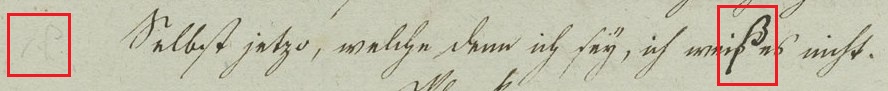 Selbst jetzo, welche denn ich sey, ich weiß es nicht.